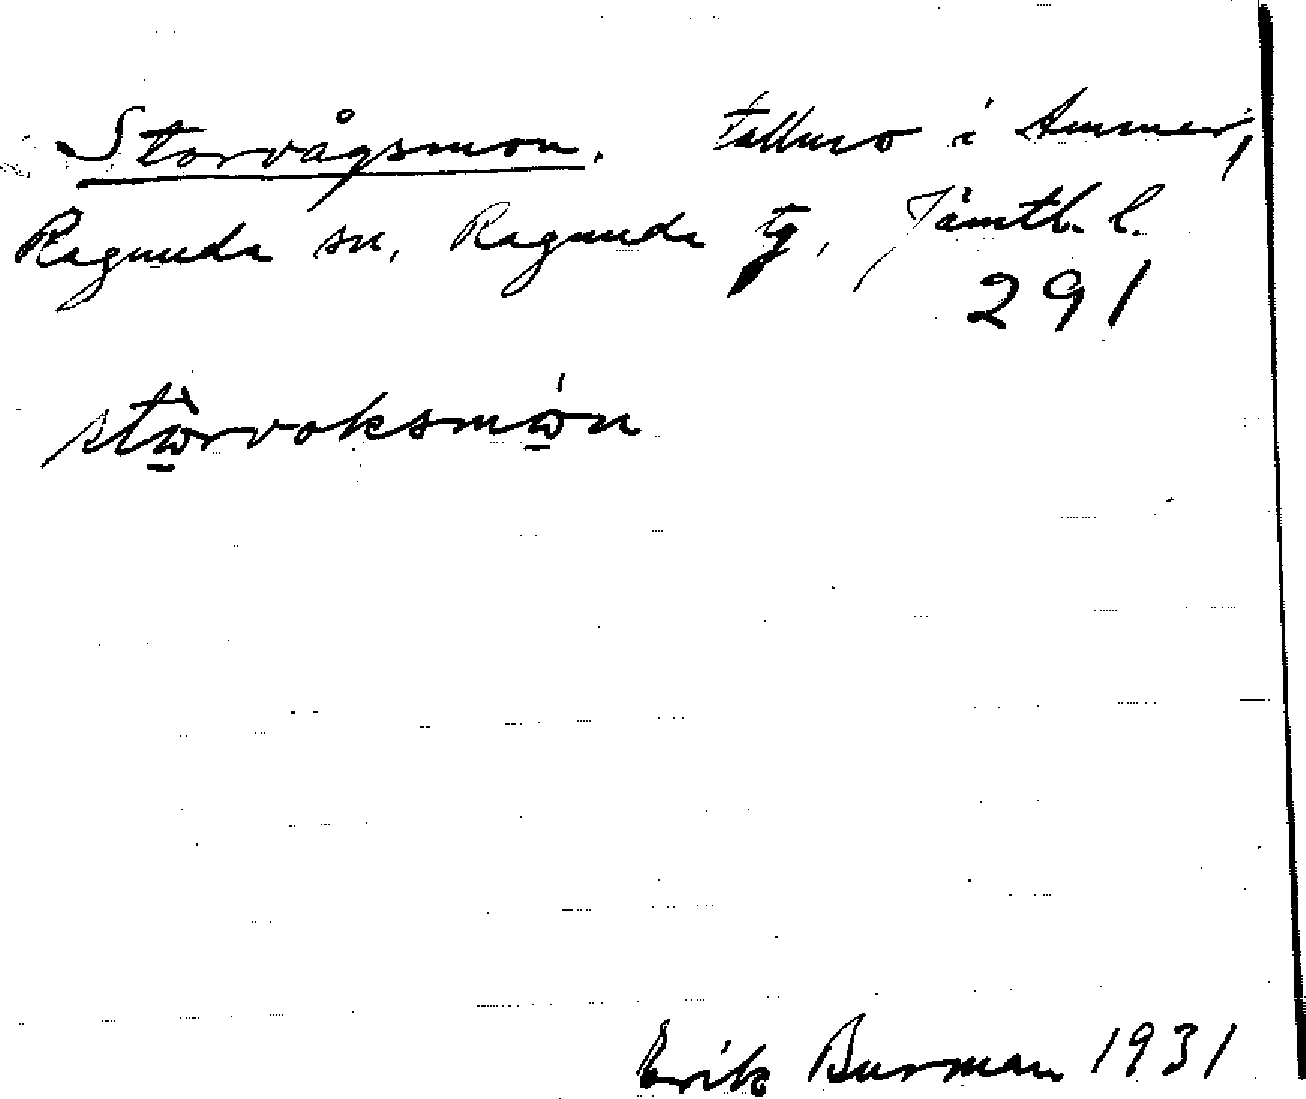 Storvågsmon. tallmo i Ammer,
Ragunda sn, Ragunda tg, Jämtl. l.
291
stɷ̀rvoksmɷ́n
Erik Burman 1931